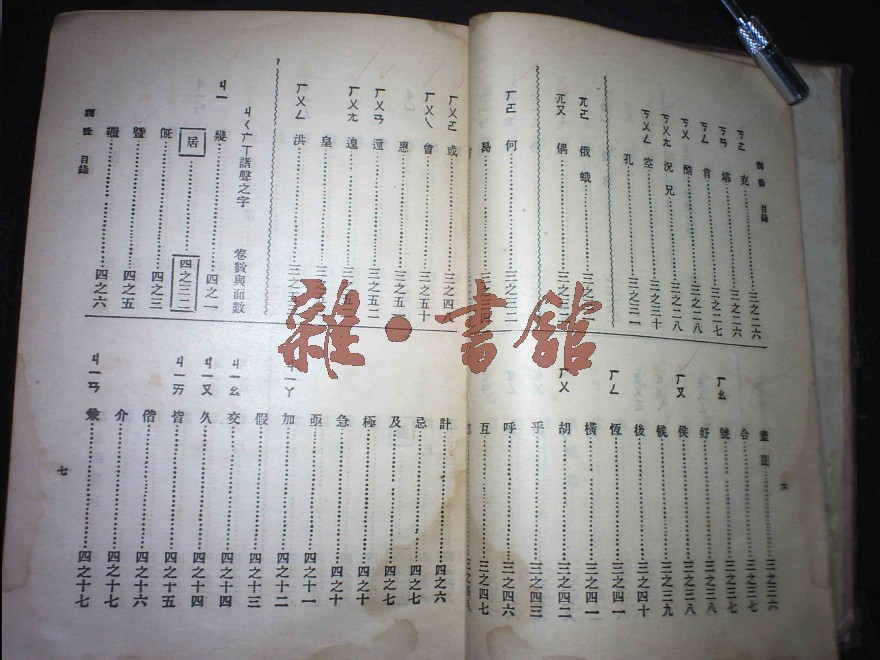 目錄
ㄎㄜ 克 三之二六
ㄎㄢ 堪 三之二六
ㄎㄣ 肯 三之二七
ㄎㄨ 酷 三之二八
ㄎㄨㄤ 況兄 三之二八
ㄎㄨㄥ 空 三之三十
孔 三之三一
ㄫㄜ 俄蛾
ㄫㄡ 偶 三之三二
ㄏㄜ 何 三之三二
曷
合 三之三七
ㄏㄠ 號 三之三七
好 三之三八
ㄏㄡ 侯 三之三八
候 三之三九
後 三之四十
ㄏㄥ 恆 三之四一
橫 三之四一
ㄏㄨ 胡 三之四二
乎 三之四三
呼 三之四六
互 三之四七
ㄏㄨㄛ 或 三之四
ㄏㄨㄟ 會 三之五十
惠
ㄏㄨㄢ 還 三之五二
ㄏㄨㄤ 遑
皇
ㄏㄨㄥ 洪
ㄐㄑㄬㄒ諸聲之字 卷數與面數
ㄐㄧ 幾 四之一
居 四之三二
旣 四之三
暨 四之五
繼 四之六
目錄
計 四之六
忌 四之七
及 四之七
極 四之十
急 四之十
亟 四之十一
ㄐㄧㄚ 加 四之十二
假 四之十三
ㄐㄧㄠ 交 四之十四
ㄐㄧㄡ 久 四之十四
ㄐㄧㄞ 皆 四之十五
偕 四之十六
介 四之十七
ㄐㄧㄢ 兼 四之十七
七
雜·書館